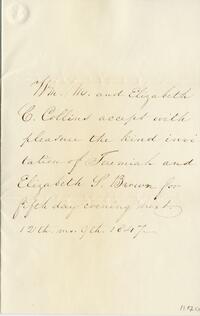 Wm. M. and Elizabeth
C. Collins accept with
pleasure the kind invi
tation of Jeremiah and
Elizabeth S. Brown for
fifth day evening next
12th. mo. 9th. 1847.